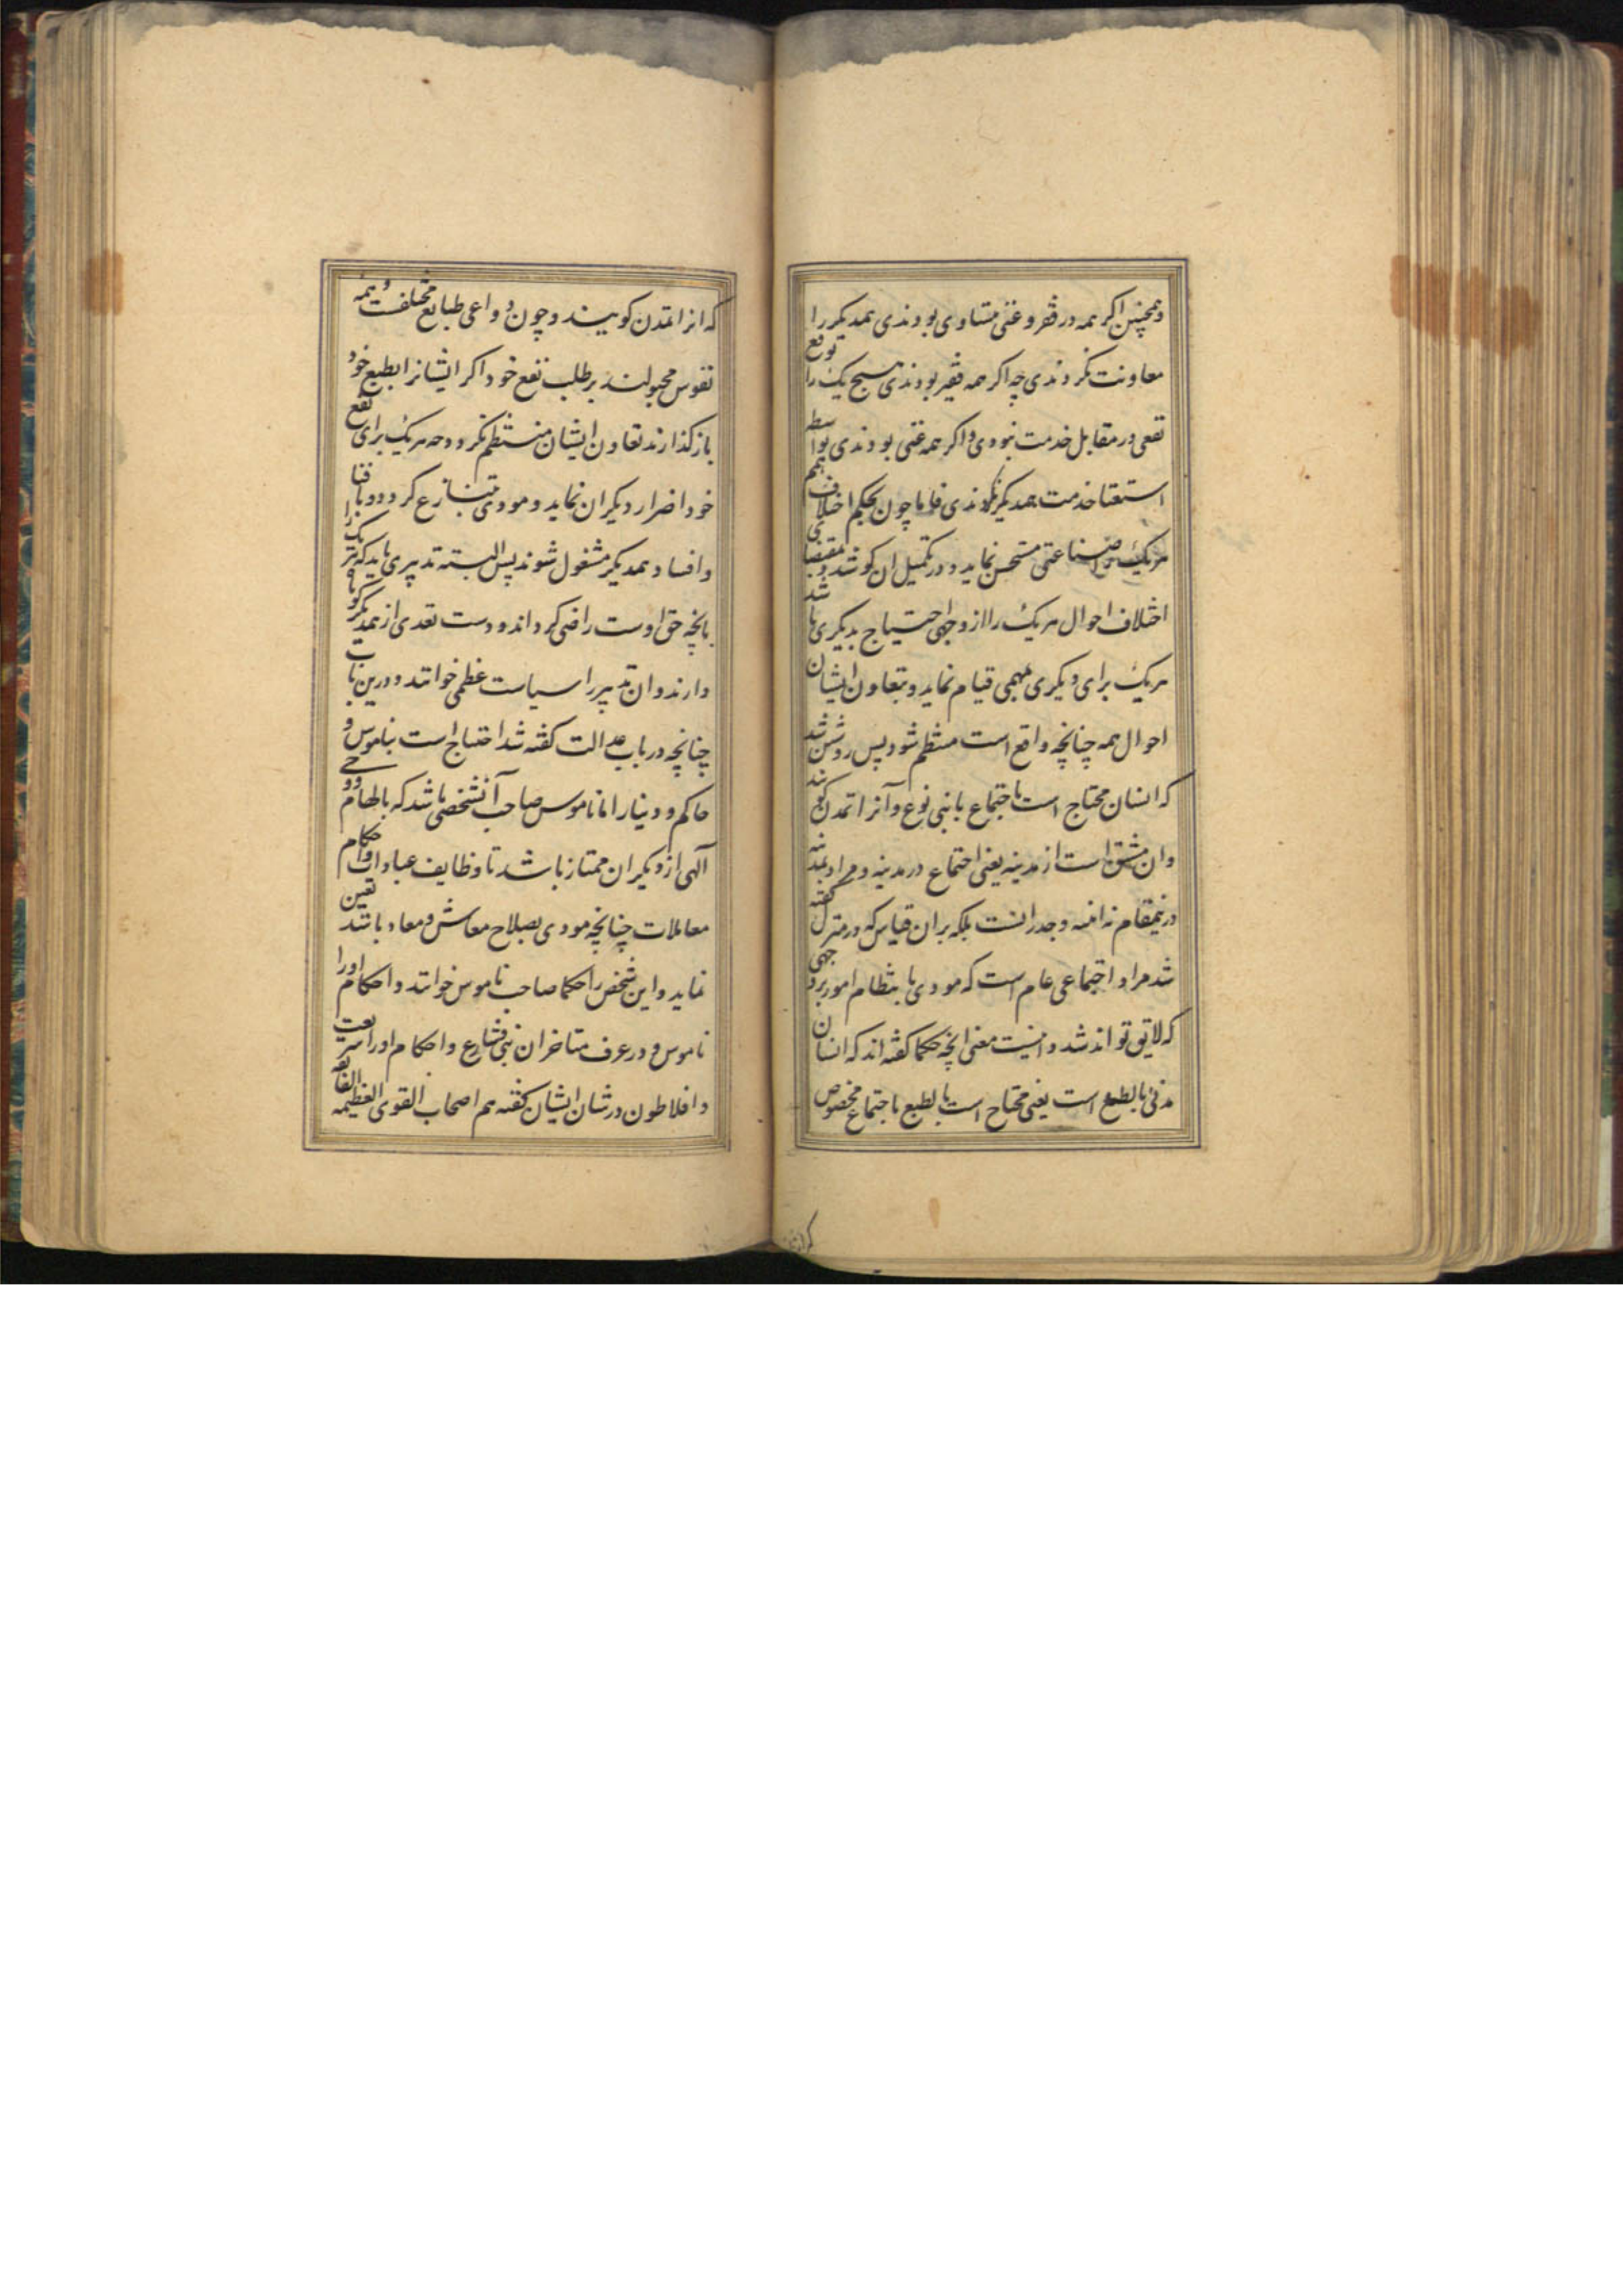 و همچنین اکر همه در فقر و غنی متساوی بودندی همدیکر را
معاونت نکردندی چه اکر همه فقیر بودندی هیچ یک را توقع
نفعی در مقابل خدمت نبودی و اکر همه غنی بودندی بواسطه
استغنا خدمت همدیکر نکردندی فاما چون بحکم اختلاف همم
هر یک صناعتی مستحسن نماید و در تکمیل ان کوشد و بمقتضای
اختلاف احوال هر یک را از وجهی احتیاج بدیکری باشد
هر یک برای دیکری مهمی قیام نماید و بتعاون ایشان
احوال همه چنانچه واقع است منتظم شود پس روشن شد
که انسان محتاج است باجتماع با بنی نوع و آنرا تمدن کویند
وان مشتق است از مدینه یعنی اجتماع در مدینه و مراد بمدینه
درینمقام نه ابنیه و جدرانست بلکه بران قیاس که در منزل کفته
شد مراد اجتماعی عام است که مودی بانتظام امور بر وجهی
که لایق تواند شد و اینست معنی انچه حکما کفته اند که انسان
مدنی بالطبع است یعنی محتاج است بالطبع باجتماع مخصوص
که انرا تمدن کویند و چون دواعی طبایع مختلفست و همه
نفوس مجبولند بر طلب نفع خود اکر ایشانرا بطبع خود
باز کذارند تعاون ایشان منتظم نکردد چه هر یک برای نفع
خود اضرار دیکران نماید و مودی بتنازع کردد و بافنا
و افساد همدیکر مشغول شوند پس البته تدبیری باید که هر یک را
بانچه حق اوست راضی کرداند و دست تعدی از همدیکر کوتاه
دارند وان تدبیر را سیاست عظمی خوانند و درین باب
چنانچه در باب عدالت کفته شد احتیاج است بناموس و
حاکم و دینار اما ناموس صاحب آنشخصی باشد که بالهام و وحی
آلهی از دیکران ممتاز باشد تا وظایف عبادات و احکام
معاملات چنانچه مودی بصلاح معاش و معاد باشد تعیین
نماید و این شخص را حکما صاحب ناموس خوانند و احکام او را
ناموس و در عرف متاخران نبی و شارع و احکام او را شریعت
و افلاطون در شان ایشان کفته هم اصحاب القوی العظیمه الفایقه